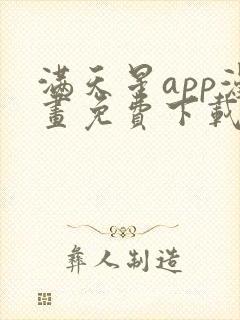 滿天星app漫
畫免費下載
彝人制造